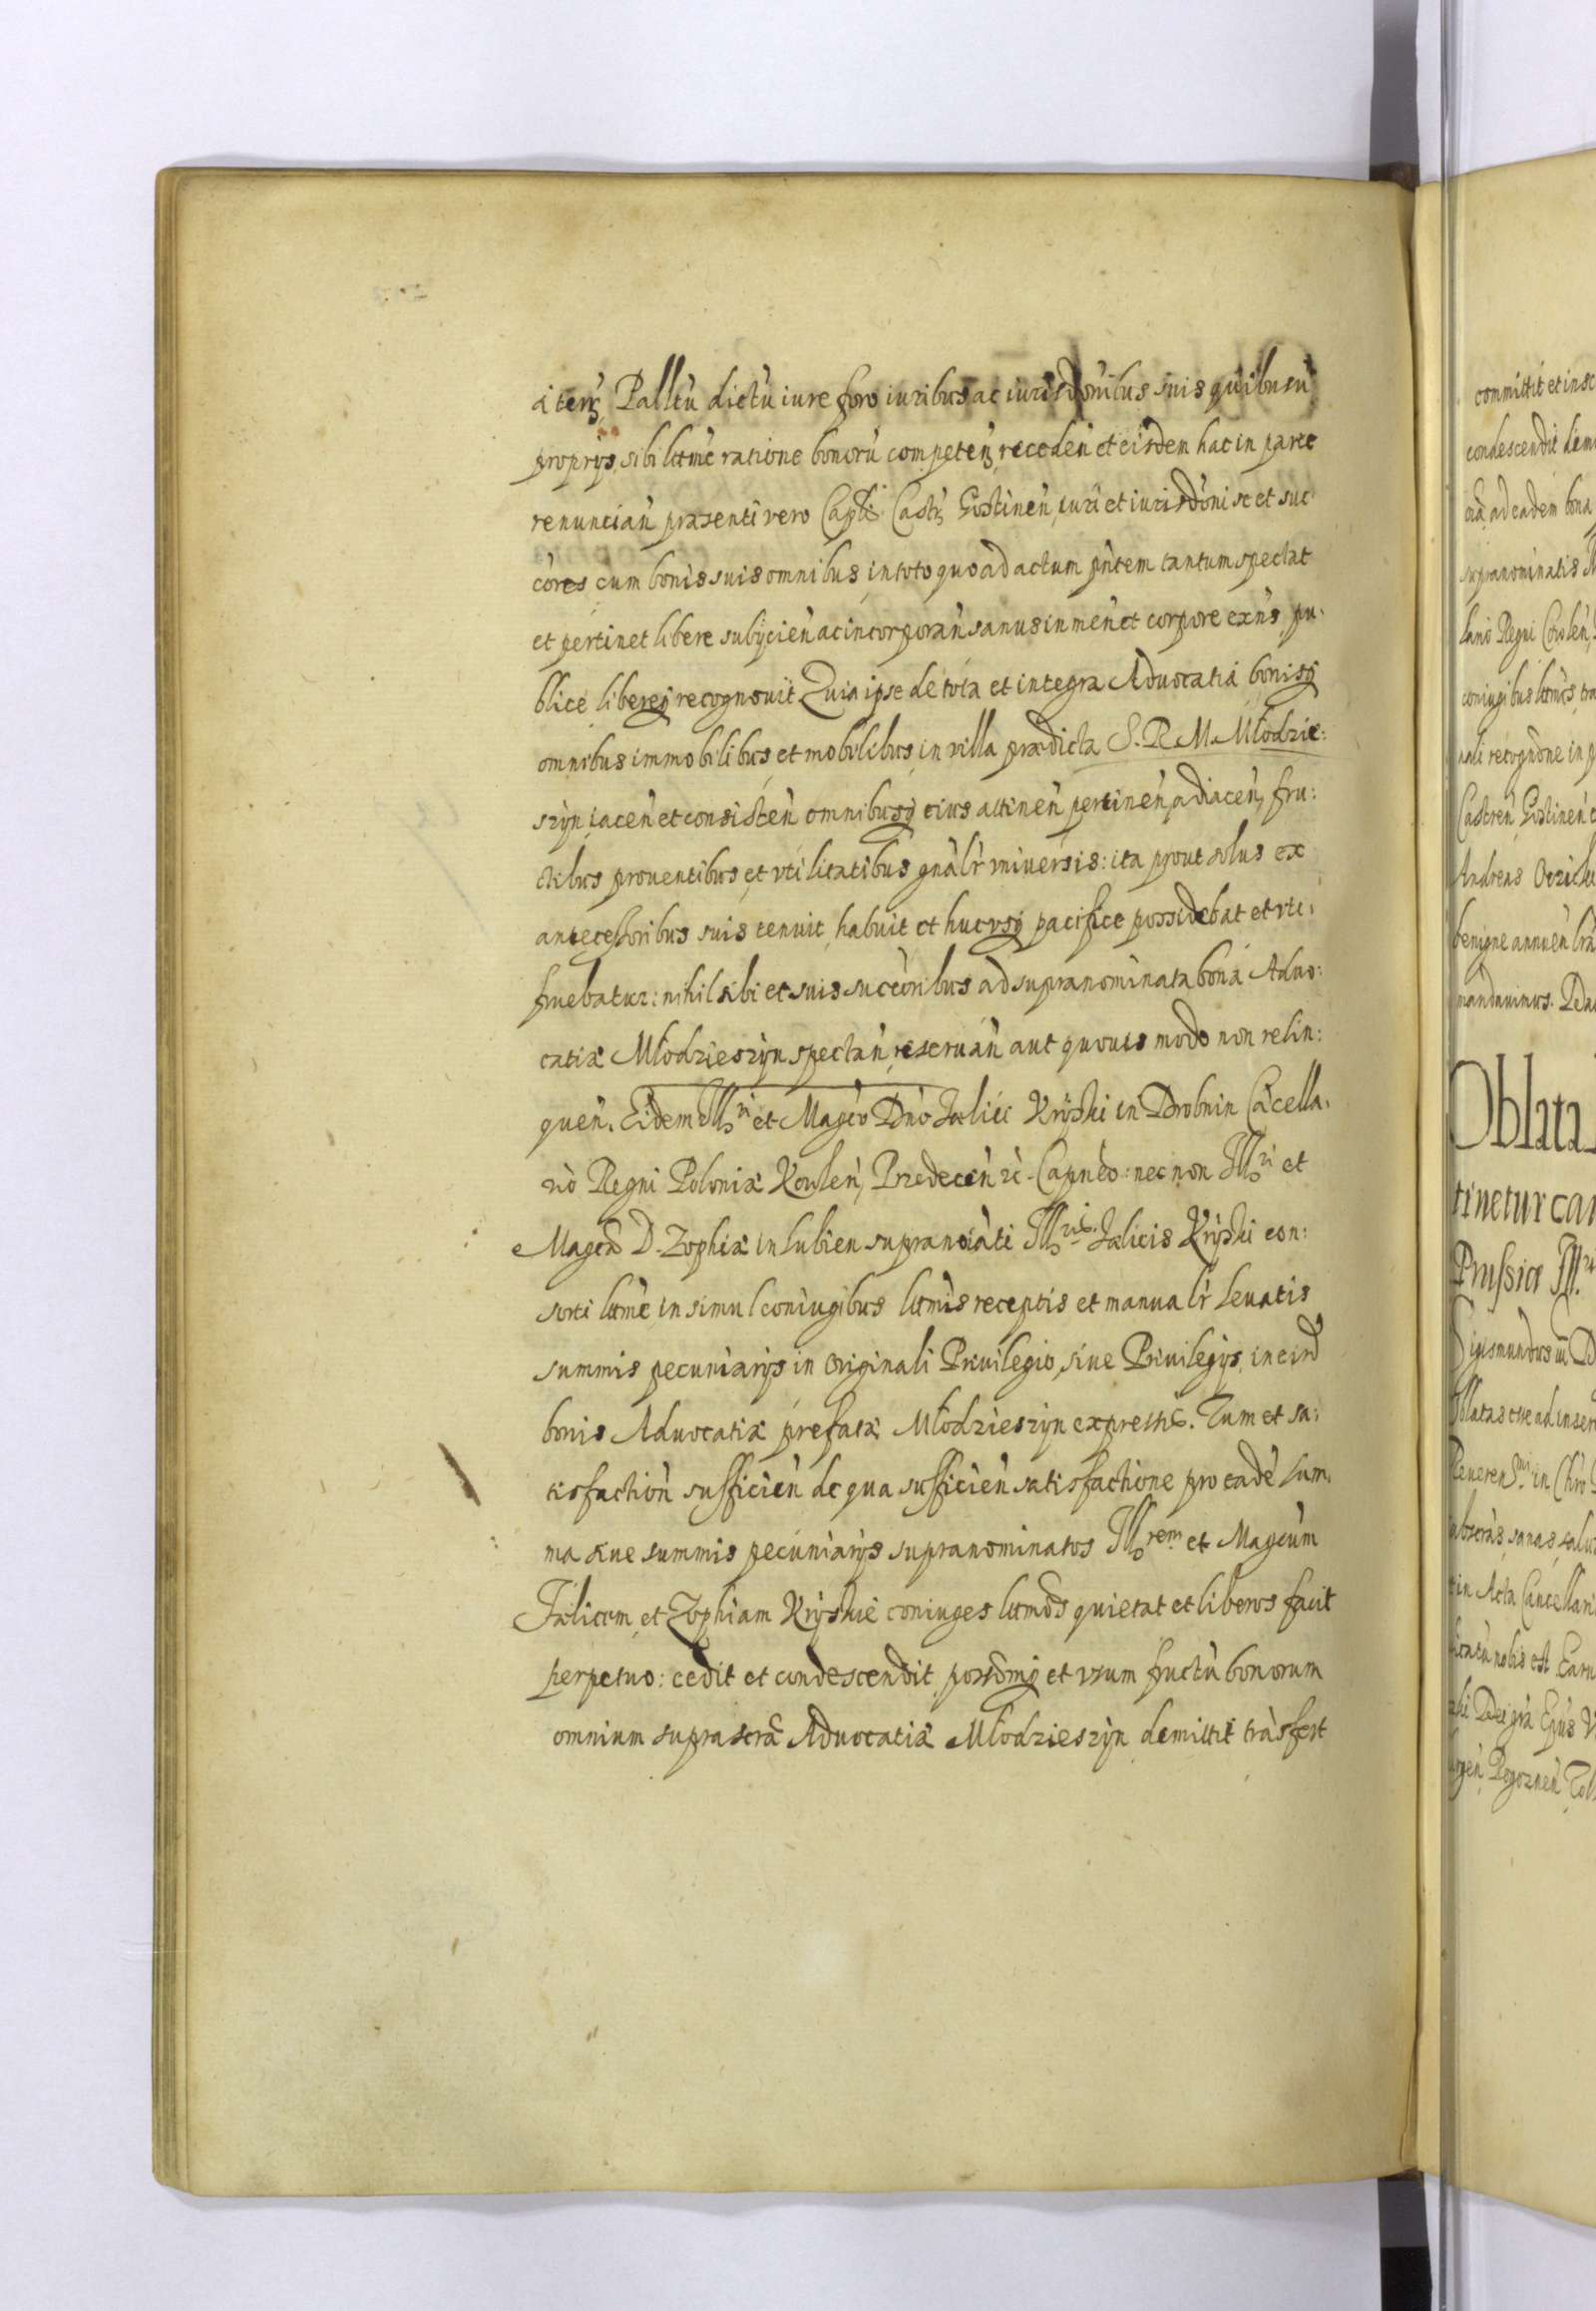 a terrꝫ Palltũ dictũ iure foro iuribus ac iurisdõnibus suis quibusũ
proprijs sibi lttmẽ ratione bonorũ competeñ recedeñ et eisdem hac in parte
renuncian̄ præsenti vero Capti Castrꝫ Gostineñ iuri et iurisdõni se et suc
cõres cum bonis suis omnibus in toto quo ad actum pñtem tantum spectat
et pertinet libere subijcieñ ac incorporañ sanus in meñ et corpore exñs pu.
blice libereq recognouit Quia ipse de tota et integra Aduocatia bonisq
omnibus immobilibus et mobilibus in villa prædicta S. R. M. Młodzie:
szyn iaceñ et consisteñ omnibusq eius attineñ pertineñ adiaceñ fru:
ctibus prouentibus et vtilitatibus gñalr̃ vniuersis: ita prout solus ex
antecessoribus suis tenuit habuit et hucvsq pacifice possidebat et vti.
fruebatur: nihil sibi et suis succõribus ad supranominata bona Aduo:
catiæ Młodzieszyn spectañ reseruañ aut quouis modo non relin:
queñ. Eidem Illri et Magco Dño Fælici Kryski in Drobnin Cãcella.
rio Regni Poloniæ Kouleñ, Przedeceñ ꝛc Capñeo: nec non Illri et
Magcæ D. Zophiæ in Lubien supranoiati Illris Fælicis Kryski con:
sorti lttmẽ in simul coniugibus lttmis receptis et manualr̃ leuatis
summis pecuniarijs in originali Priuilegio siue Priuilegijs in eisd
bonis Aduocatiæ præfatæ Młodzieszyn expressis. Tum et sa:
tisfactioñ sufficieñ de qua sufficieñ satisfactione pro eadẽ sum.
ma siue summis pecuniarijs supranominatos Illrem et Magcum
Fælicem et Zophiam Kryskie coniuges lttmos quietat et liberos facit
perpetuo: cedit et condescendit possõmq et vsum fructũ bonorum
omnium suprascrã Aduocatiæ Młodzieszyn demittit trãsfert
committit et insc
condescendit
ad eadem bona
supranominatis
Regni
coniugibus lttmis
recognõne in
Castreñ Gostineñ
Andreas
benigne annueñ
mandauimus.
Oblata
tinetur
Prussiæ Ill
Sigismundus III D
in Chro
sanas
in Acta Cancellari
nobis est
Dei grã